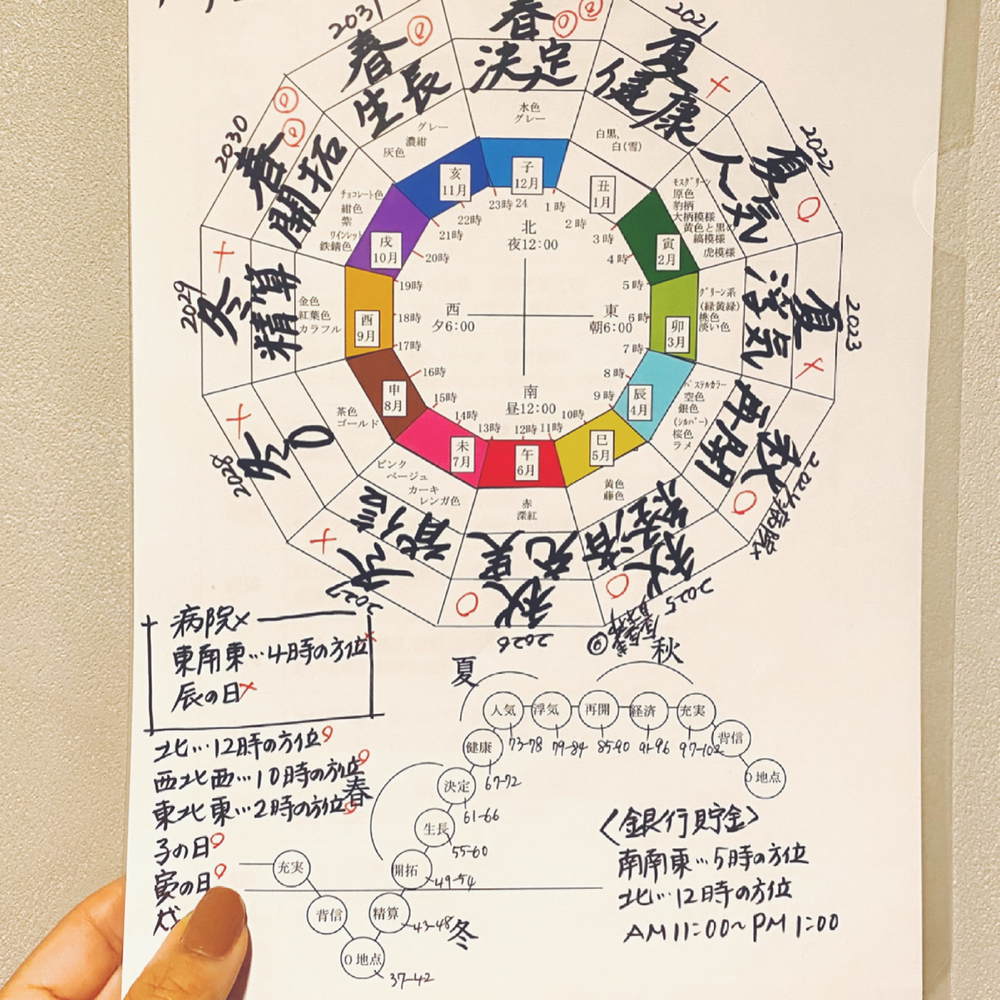 2031
春
生長
春
決定
2021
夏
健康
2022
夏
人気
2023
夏
浮気
秋
再開
2025
秋
経済
2026
秋
充実
2027
冬
背信
2028
冬
0
2029
冬
精算
2030
春
開拓
水色
グレー
白黒,
白(雪)
モスグリーン
原色
豹柄
大柄模様
黄色と黒の
縞模様
虎模様
グリーン系
(緑黄緑)
桃色
淡い色
パステルカラー
空色
銀色
(シルバー)
桜色
ラメ
黄色
藤色
赤
深紅
ピンク
ベージュ
カーキ
レンガ色
茶色
ゴールド
金色
紅葉色
カラフル
チョコレート色
紺色
紫
ワインレッド
鉄錆色
グレー
濃紺
灰色
子
12月
丑
1月
寅
2月
卯
3月
辰
4月
巳
5月
午
6月
未
7月
申
8月
酉
9月
戌
10月
亥
11月
23時 24
1時
2時
3時
4時
5時
6時
7時
8時
9時
10時
12時 11時
13時
14時
15時
16時
17時
18時
19時
20時
21時
22時
北
夜12:00
東
朝6:00
南
昼12:00
西
夕6:00
病院×
東南東…4時の方位×
辰の日×
北…12時の方位
西北西…10時の方位
東北東…2時の方位
子の日
寅の日
夏
秋
春
冬
人気
浮気
再開
経済
充実
背信
0 地点
73-78
79-84
85-90
91-96
97-102
健康
67-72
決定
61-66
生長
55-60
開拓
49-54
精算
43-48
充実
背信
0 地点
37-42
〈銀行貯金〉
南南東…5時の方位
北…12時の方位
AM11:00~PM1:00